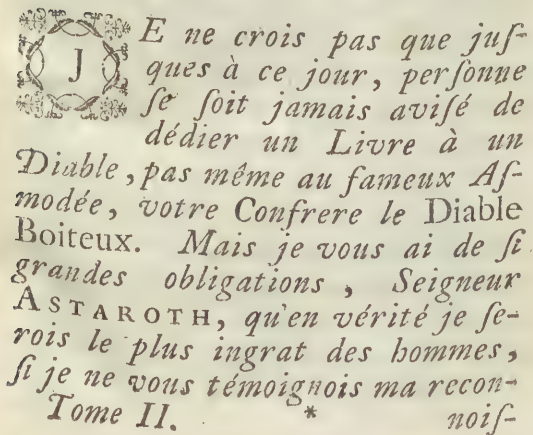 JE ne crois pas que juſ-
ques à ce jour, perſonne
ſe ſoit jamais aviſé de
dédier un Livre à un
Diable, pas même au fameux Aſ-
modée, votre Confrere le Diable
Boiteux. Mais je vous ai de ſi
grandes obligations, Seigneur
ASTAROTH, qu'en vérité je ſe-
rois le plus ingrat des hommes,
ſi je ne vous témoignois ma recon-
Tome II. * noiſ-